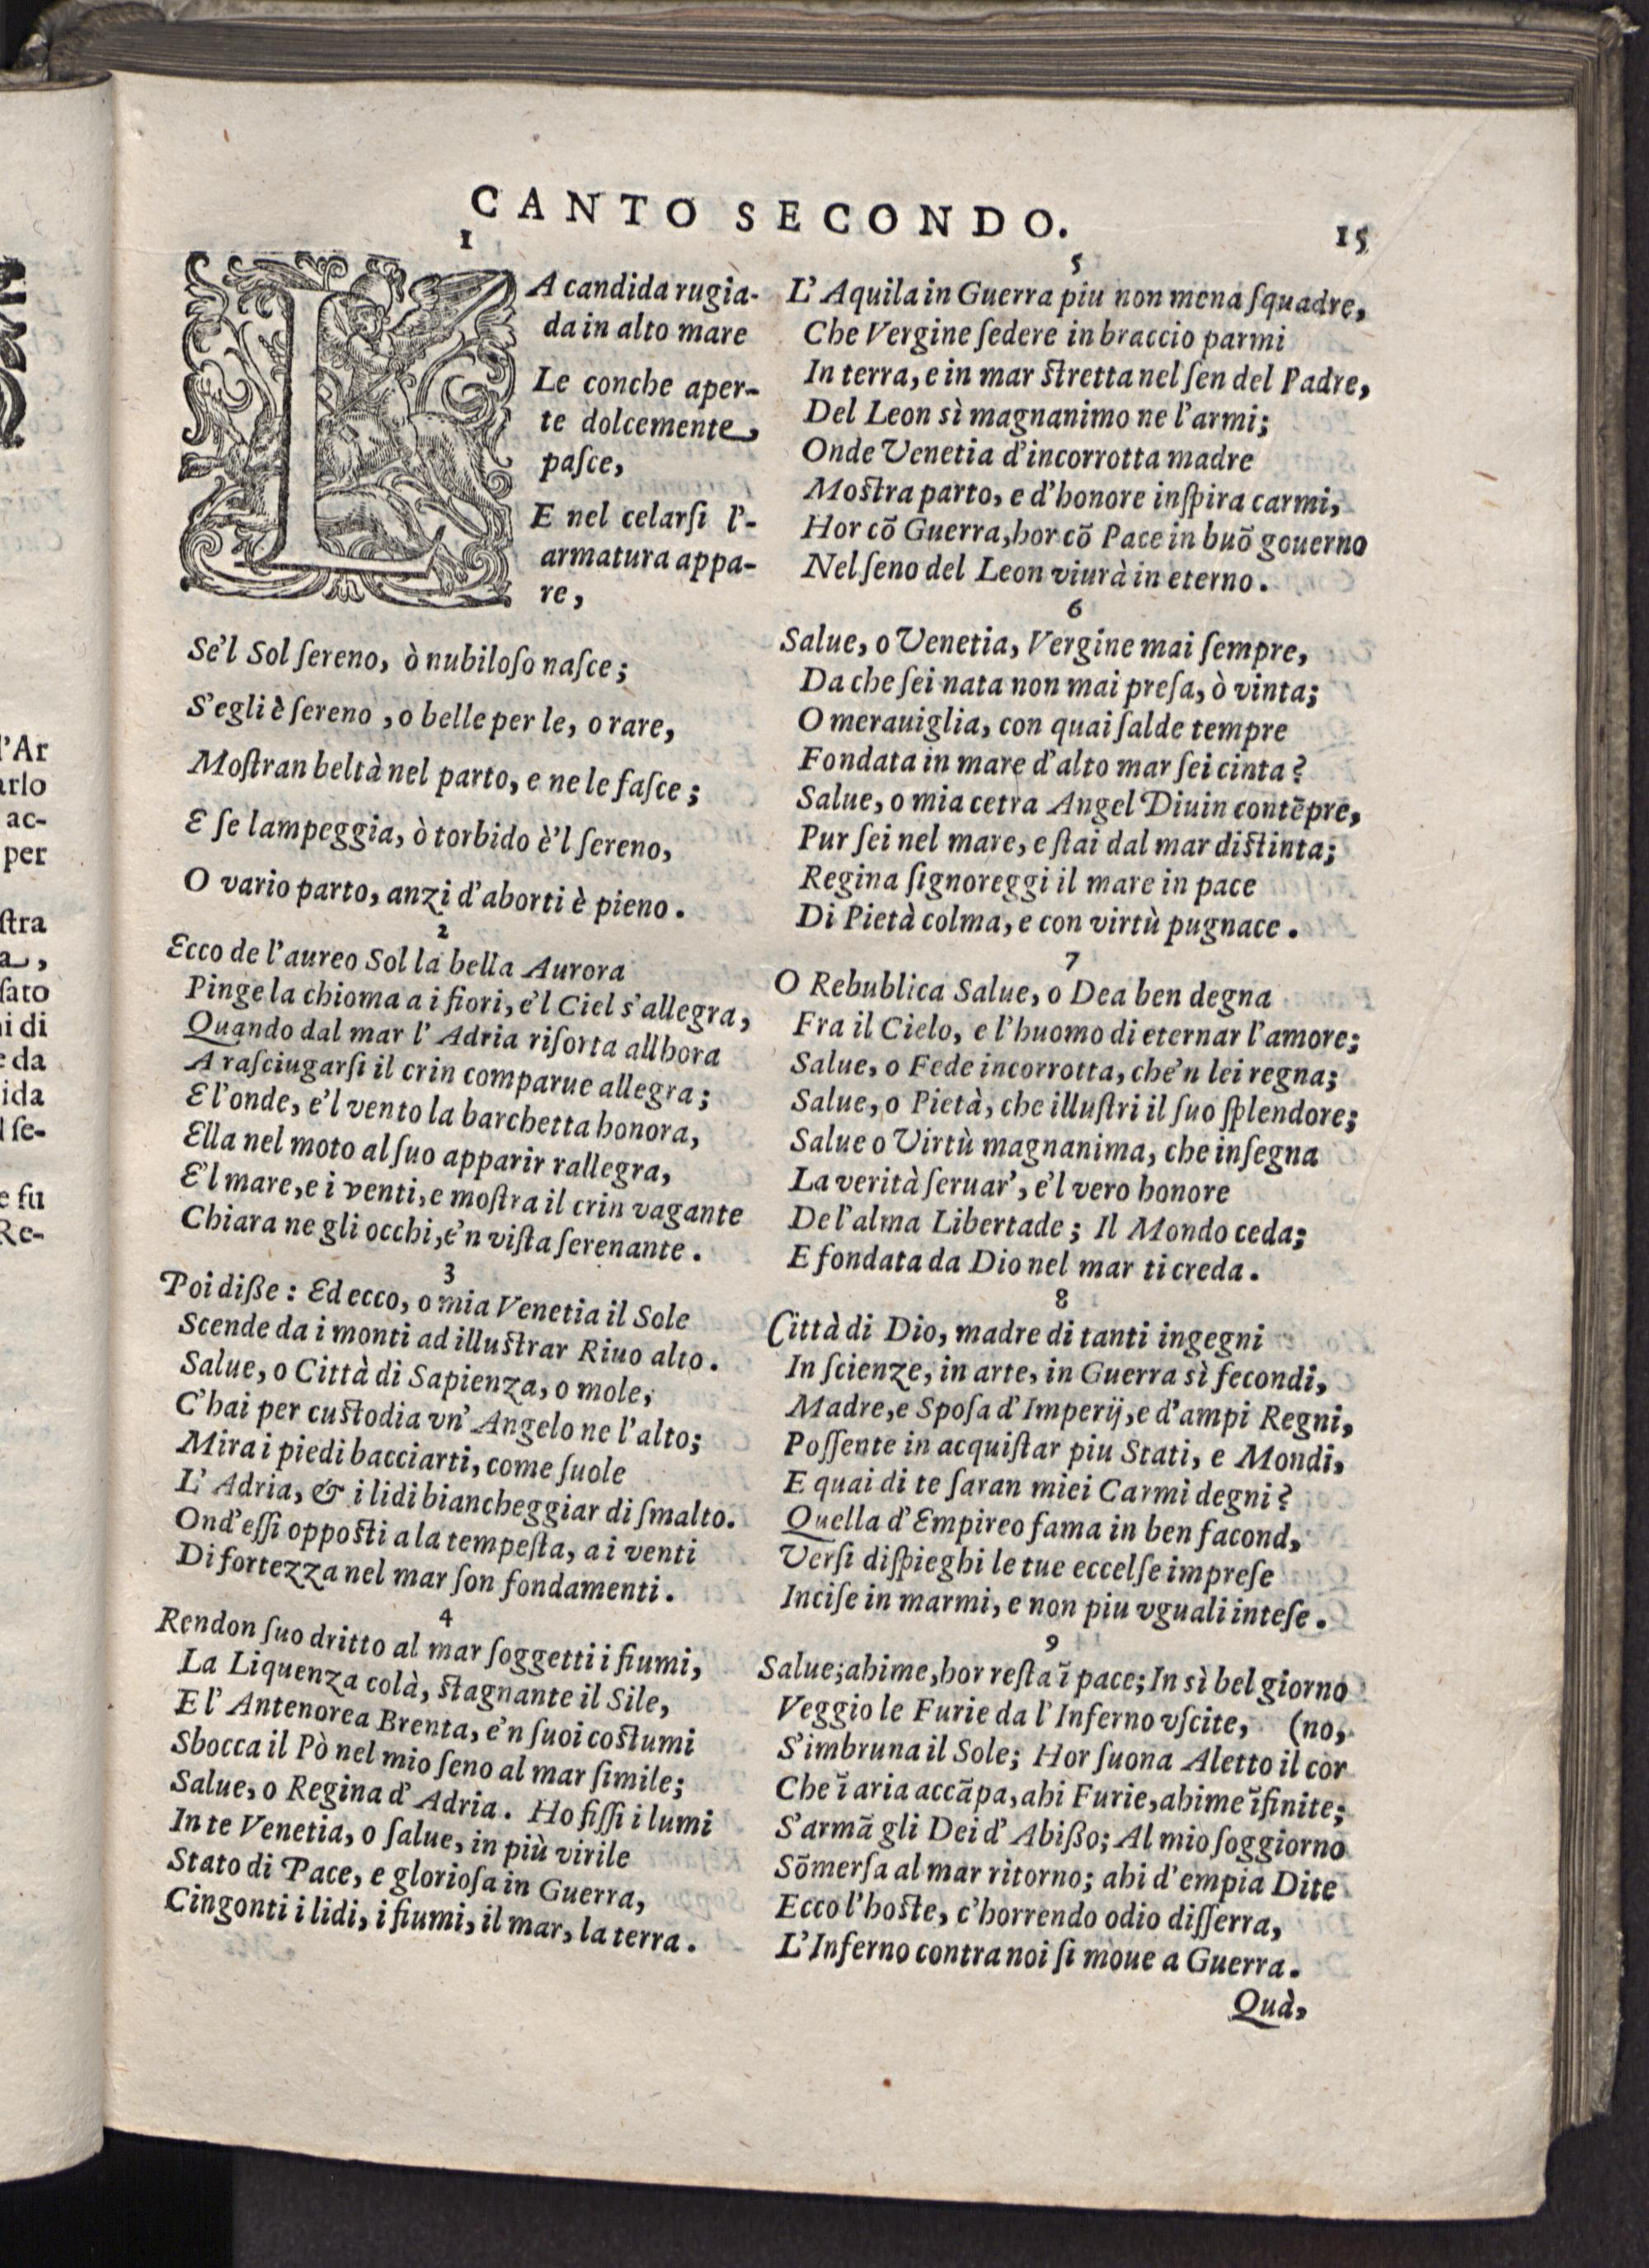 l'Ar
arlo
ac-
per
stra
a,
sato
ni di
e da
ida
l se-
e fu
Re-
CANTO SECONDO.
15
1
LA candida rugia-
da in alto mare
Le conche aper-
te dolcemente
pasce,
E nel celarsi l'-
armatura appa-
re,
Se'l Sol sereno, ò nubiloso nasce;
S'egli è sereno, o belle perle, o rare,
Mostran beltà nel parto, e ne le fasce;
E se lampeggia, ò torbido è'l sereno,
O vario parto, anzi d'aborti è pieno.
2
Ecco de l'aureo Sol la bella Aurora
Pinge la chioma a i fiori, e'l Ciel s'allegra,
Quando dal mar l'Adria risorta allhora
A rasciugarsi il crin comparue allegra;
E l'onde, e'l vento la barchetta honora,
Ella nel moto al suo apparir rallegra,
E'l mare, e i venti, e mostra il crin vagante
Chiara ne gli occhi, e'n vista serenante.
3
Poi disse: Ed ecco, o mia Venetia il Sole
Scende da i monti ad illustrar Riuo alto.
Salue, o Città di Sapienza, o mole,
C'hai per custodia vn' Angelo ne l'alto;
Mira i piedi bacciarti, come suole
L'Adria, & i lidi biancheggiar di smalto.
Ond'essi opposti a la tempesta, a i venti
Di fortezza nel mar son fondamenti.
4
Rendon suo dritto al mar soggetti i fiumi,
La Liquenza colà, stagnante il Sile,
E l'Antenorea Brenta, e'n suoi costumi
Sbocca il Pò nel mio seno al mar simile;
Salue, o Regina d'Adria. Ho fissi i lumi
In te Venetia, o salue, in più virile
Stato di Pace, e gloriosa in Guerra,
Cingonti i lidi, i fiumi, il mar, la terra.
5
L'Aquila in Guerra piu non mena squadre,
Che Vergine sedere in braccio parmi
In terra, e in mar stretta nel sen del Padre,
Del Leon sì magnanimo ne l'armi;
Onde Venetia d'incorrotta madre
Mostra parto, e d'honore inspira carmi,
Hor cō Guerra, hor cō Pace in buō gouerno
Nel seno del Leon viurà in eterno.
6
Salue, o Venetia, Vergine mai sempre,
Da che sei nata non mai presa, ò vinta;
O merauiglia, con quai salde tempre
Fondata in mare d'alto mar sei cinta?
Salue, o mia cetra Angel Diuin contēpre,
Pur sei nel mare, e stai dal mar distinta;
Regina signoreggi il mare in pace
Di Pietà colma, e con virtù pugnace.
7
O Rebublica Salue, o Dea ben degna
Fra il Cielo, e l'huomo di eternar l'amore;
Salue, o Fede incorrotta, che'n lei regna;
Salue, o Pietà, che illustri il suo splendore;
Salue o Virtù magnanima, che insegna
La verità seruar', e'l vero honore
De l'alma Libertade; Il Mondo ceda;
E fondata da Dio nel mar ti creda.
8
Città di Dio, madre di tanti ingegni
In scienze, in arte, in Guerra sì fecondi,
Madre, e Sposa d'Imperij, e d'ampi Regni,
Possente in acquistar piu Stati, e Mondi,
E quai di te saran miei Carmi degni?
Quella d'Empireo fama in ben facond,
Versi dispieghi le tue eccelse imprese
Incise in marmi, e non piu vguali intese.
9
Salue; ahime, hor resta ī pace; In sì bel giorno
Veggio le Furie da l'Inferno vscite, (no,
S'imbruna il Sole; Hor suona Aletto il cor
Che ī aria accāpa, ahi Furie, ahime īfinite;
S'armā gli Dei d'Abisso; Al mio soggiorno
Sōmersa al mar ritorno; ahi d'empia Dite
Ecco l'hoste, c'horrendo odio disserra,
L'Inferno contra noi si moue a Guerra.
Quà,